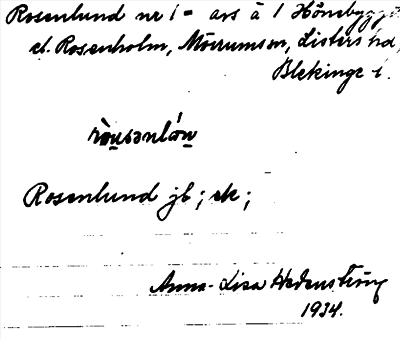 Rosenlund nr 1 = avs å 1 Hönebygget
el. Rosenholm, Mörrums sn, Listers hd,
Blekinge l.
rò̤usənlón̤
Rosenlund jb; ek;
Anna-Lisa Hedenström
1934.